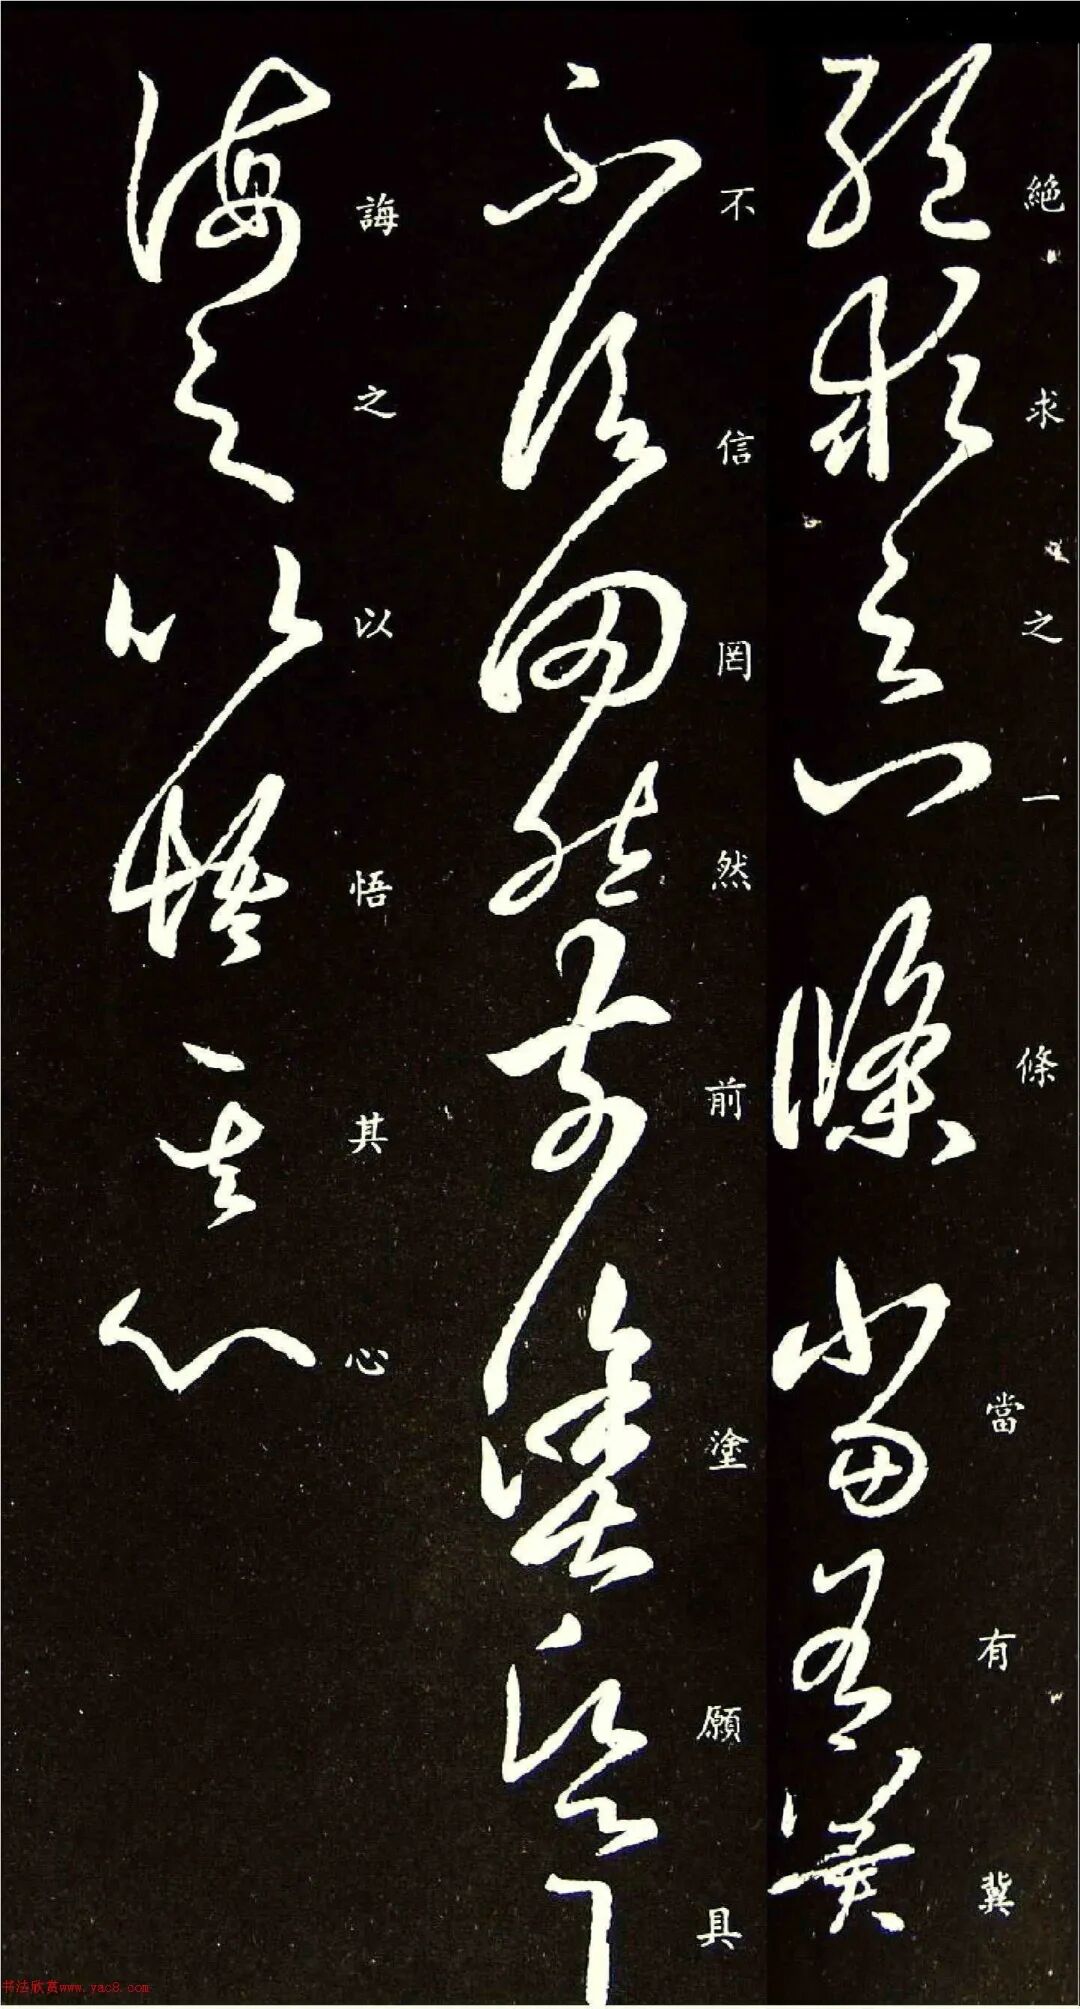 絕求之一條當有冀
不信罔然前塗願具
誨之以悟其心
书法欣赏www.yac8.com